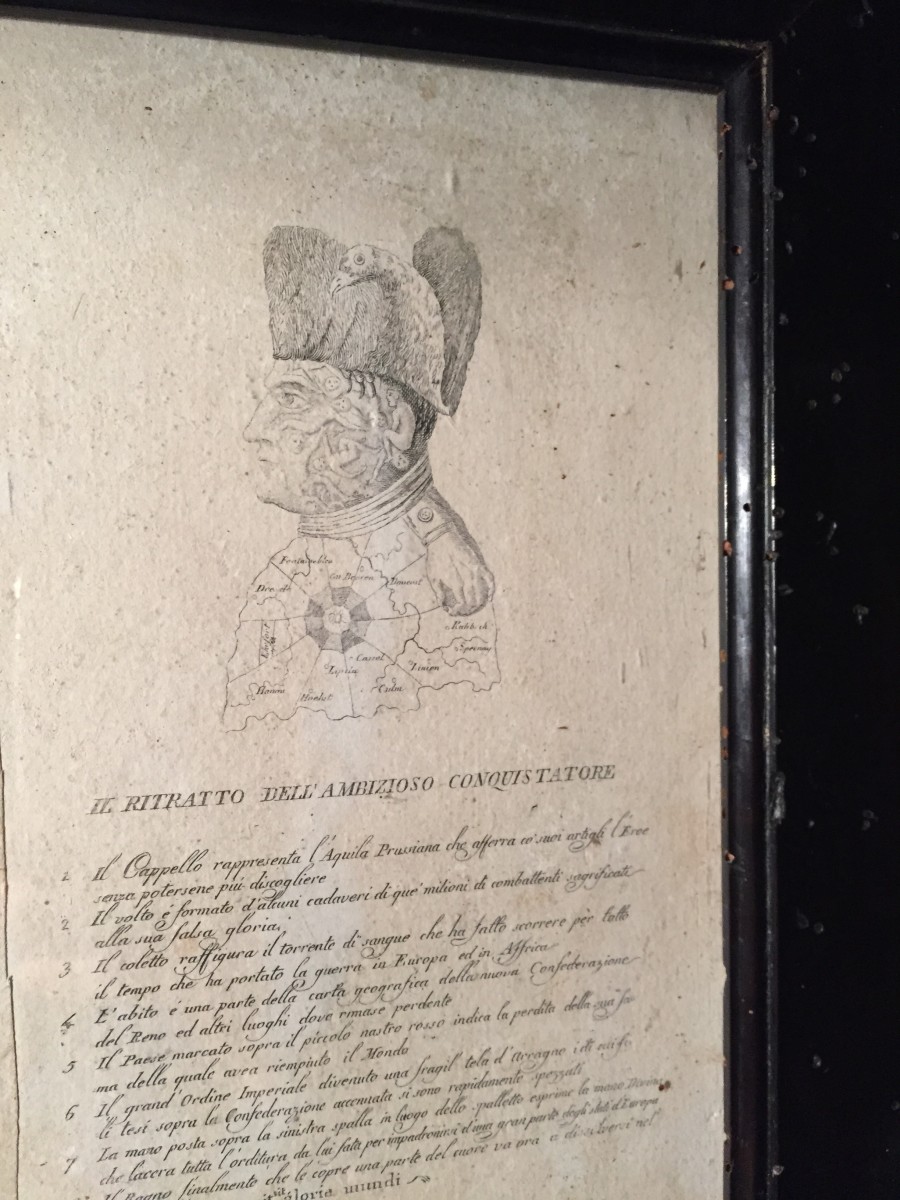 Dresda
Cassel
Lipsia
Culm
IL RITRATTO DELL'AMBIZIOSO CONQUISTATORE
1 Il Cappello rappresenta l'Aquila Prussiana che afferra co' suoi artigli l'Eroe
senza potersene più discogliere
2 Il volto è formato d'alcuni cadaveri di que' milioni di combattenti sagrificati
alla sua falsa gloria.
3 Il coletto raffigura il torrente di sangue che ha fatto scorrere per tutto
il tempo che ha portato la guerra in Europa ed in Affrica
4 L'abito è una parte della carta geografica della nuova Confederazione
del Reno ed altri luoghi dove rimase perdente
5 Il Paese marcato sopra il piccolo nastro rosso indica la perdita della sua fa
ma della quale avea riempiuto il Mondo
6 Il grand'Ordine Imperiale divenuto una fragil tela d'Arragno i di cui fi
li tesi sopra la Confederazione accennata si sono rapidamente spezzati
7 La mano posta sopra la sinistra spalla in luogo dello spalletto esprime la mano Divina
che lacera tutta l'orditura da lui fata per impadronirsi d'una gran parte degli stati d'Europa
Il Ragno finalmente che le copre una parte del cuore va ora a disolversi nel
gloria mundi